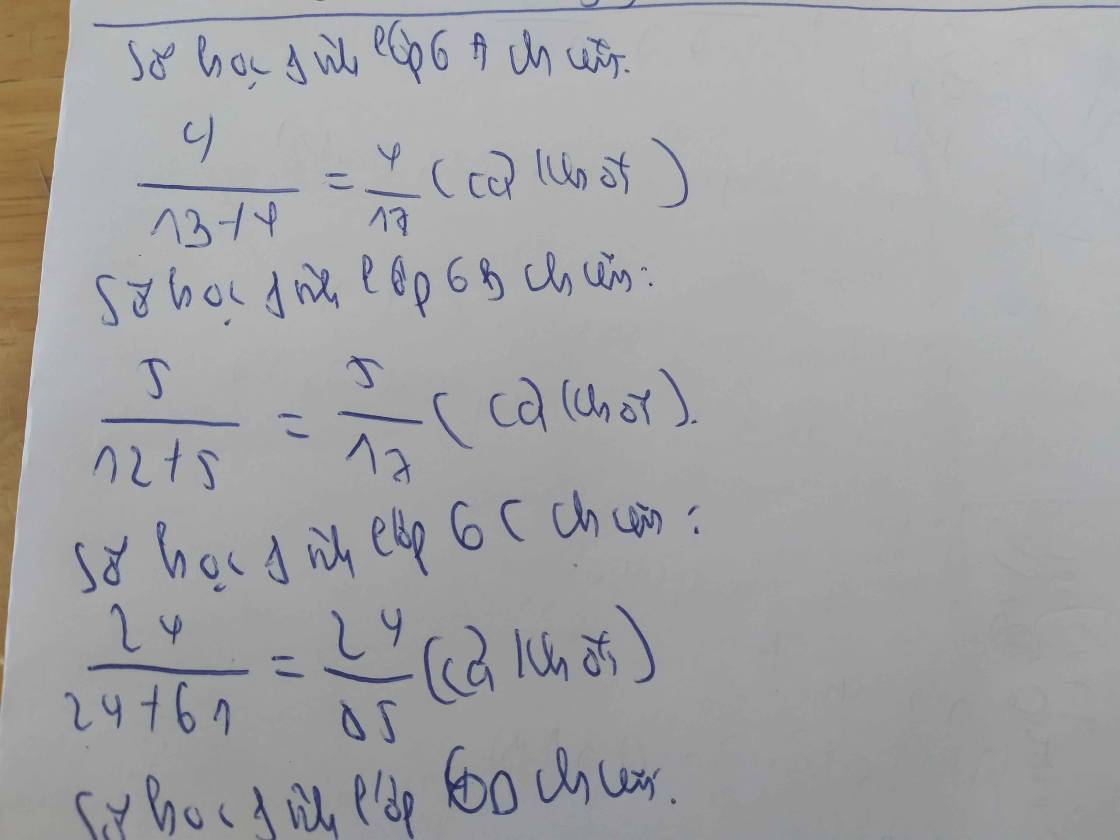 Số học sinh lớp 6A chiếm:
4/13+4 = 4/17 (cả khối)
Số học sinh lớp 6B chiếm:
5/12+5 = 5/17 (cả khối).
Số học sinh lớp 6C chiếm:
24/24+61 = 24/85 (cả khối)
Số học sinh lớp 6D chiếm.